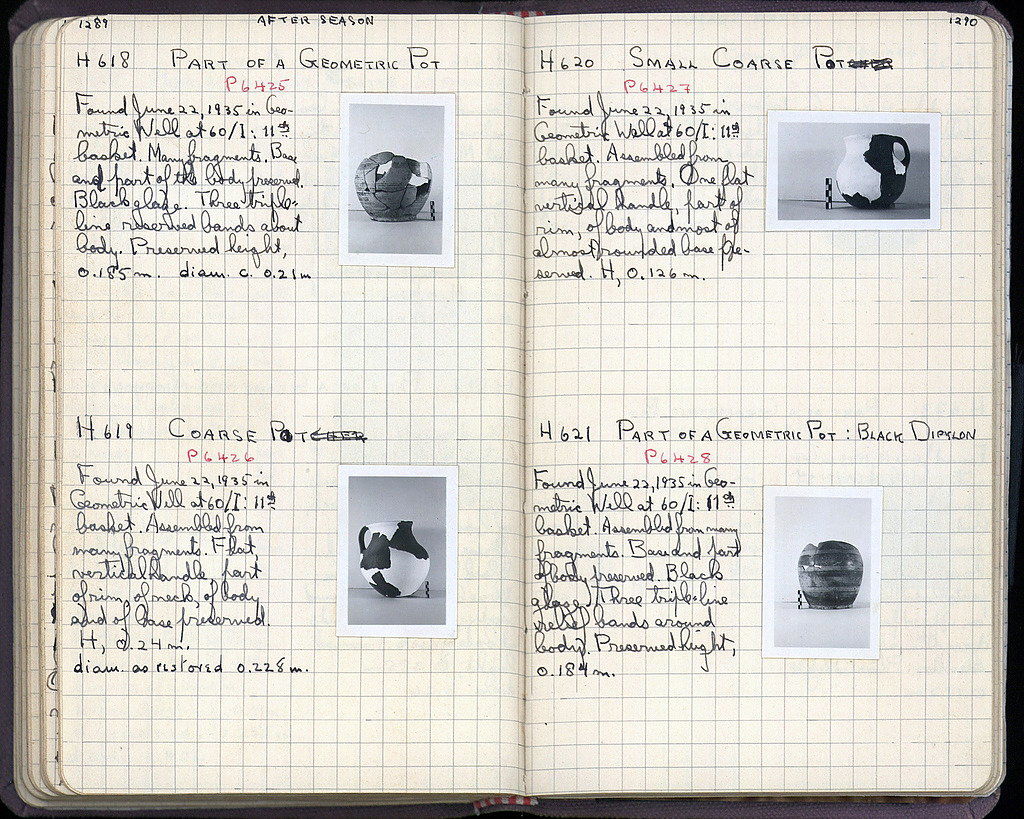 1289
AFTER SEASON
H618 PART OF A GEOMETRIC POT
P6425
Found June 22, 1935 in Geo-
metric Well at 60/I: 11th
basket. Many fragments. Base
and part of the body preserved.
Black glaze. Three triple-
line reserved bands about
body. Preserved height,
0.185 m. diam. c. 0.21 m
H619 COARSE POT
P6426
Found June 22, 1935 in
Geometric Well at 60/I: 11th
basket. Assembled from
many fragments. Flat,
vertical handle, part
of rim, of neck, of body
and of base preserved.
H, 0.24 m.
diam. as restored 0.228 m.
1290
H620 SMALL COARSE POT
P6427
Found June 22, 1935 in
Geometric Well at 60/I: 11th
basket. Assembled from
many fragments. One flat
vertical handle, part of
rim, of body and most of
almost rounded base pre-
served. H, 0.126 m.
H621 PART OF A GEOMETRIC POT : BLACK DIPYLON
P6428
Found June 22, 1935 in Geo-
metric Well at 60/I: 11th
basket. Assembled from many
fragments. Base and part
of body preserved. Black
glaze. Three triple-line
relief bands around
body. Preserved height,
0.184 m.